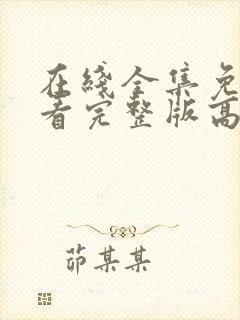 在綫全集免
看完整版高
茆某某